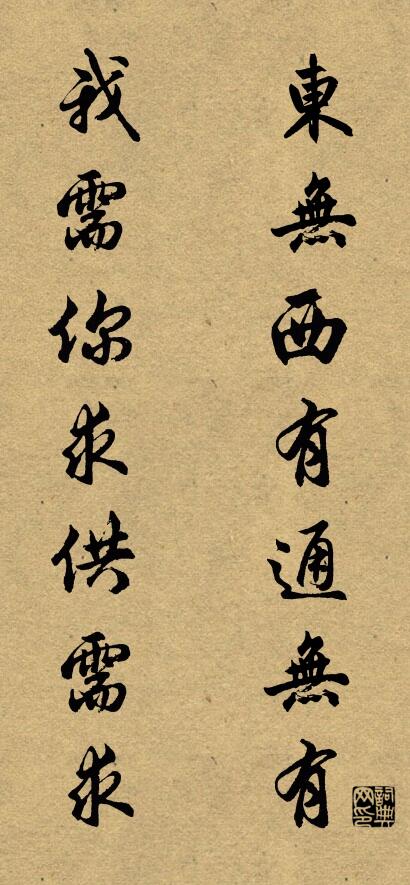 東無西有通無有
我需你求供需求
詞典網印